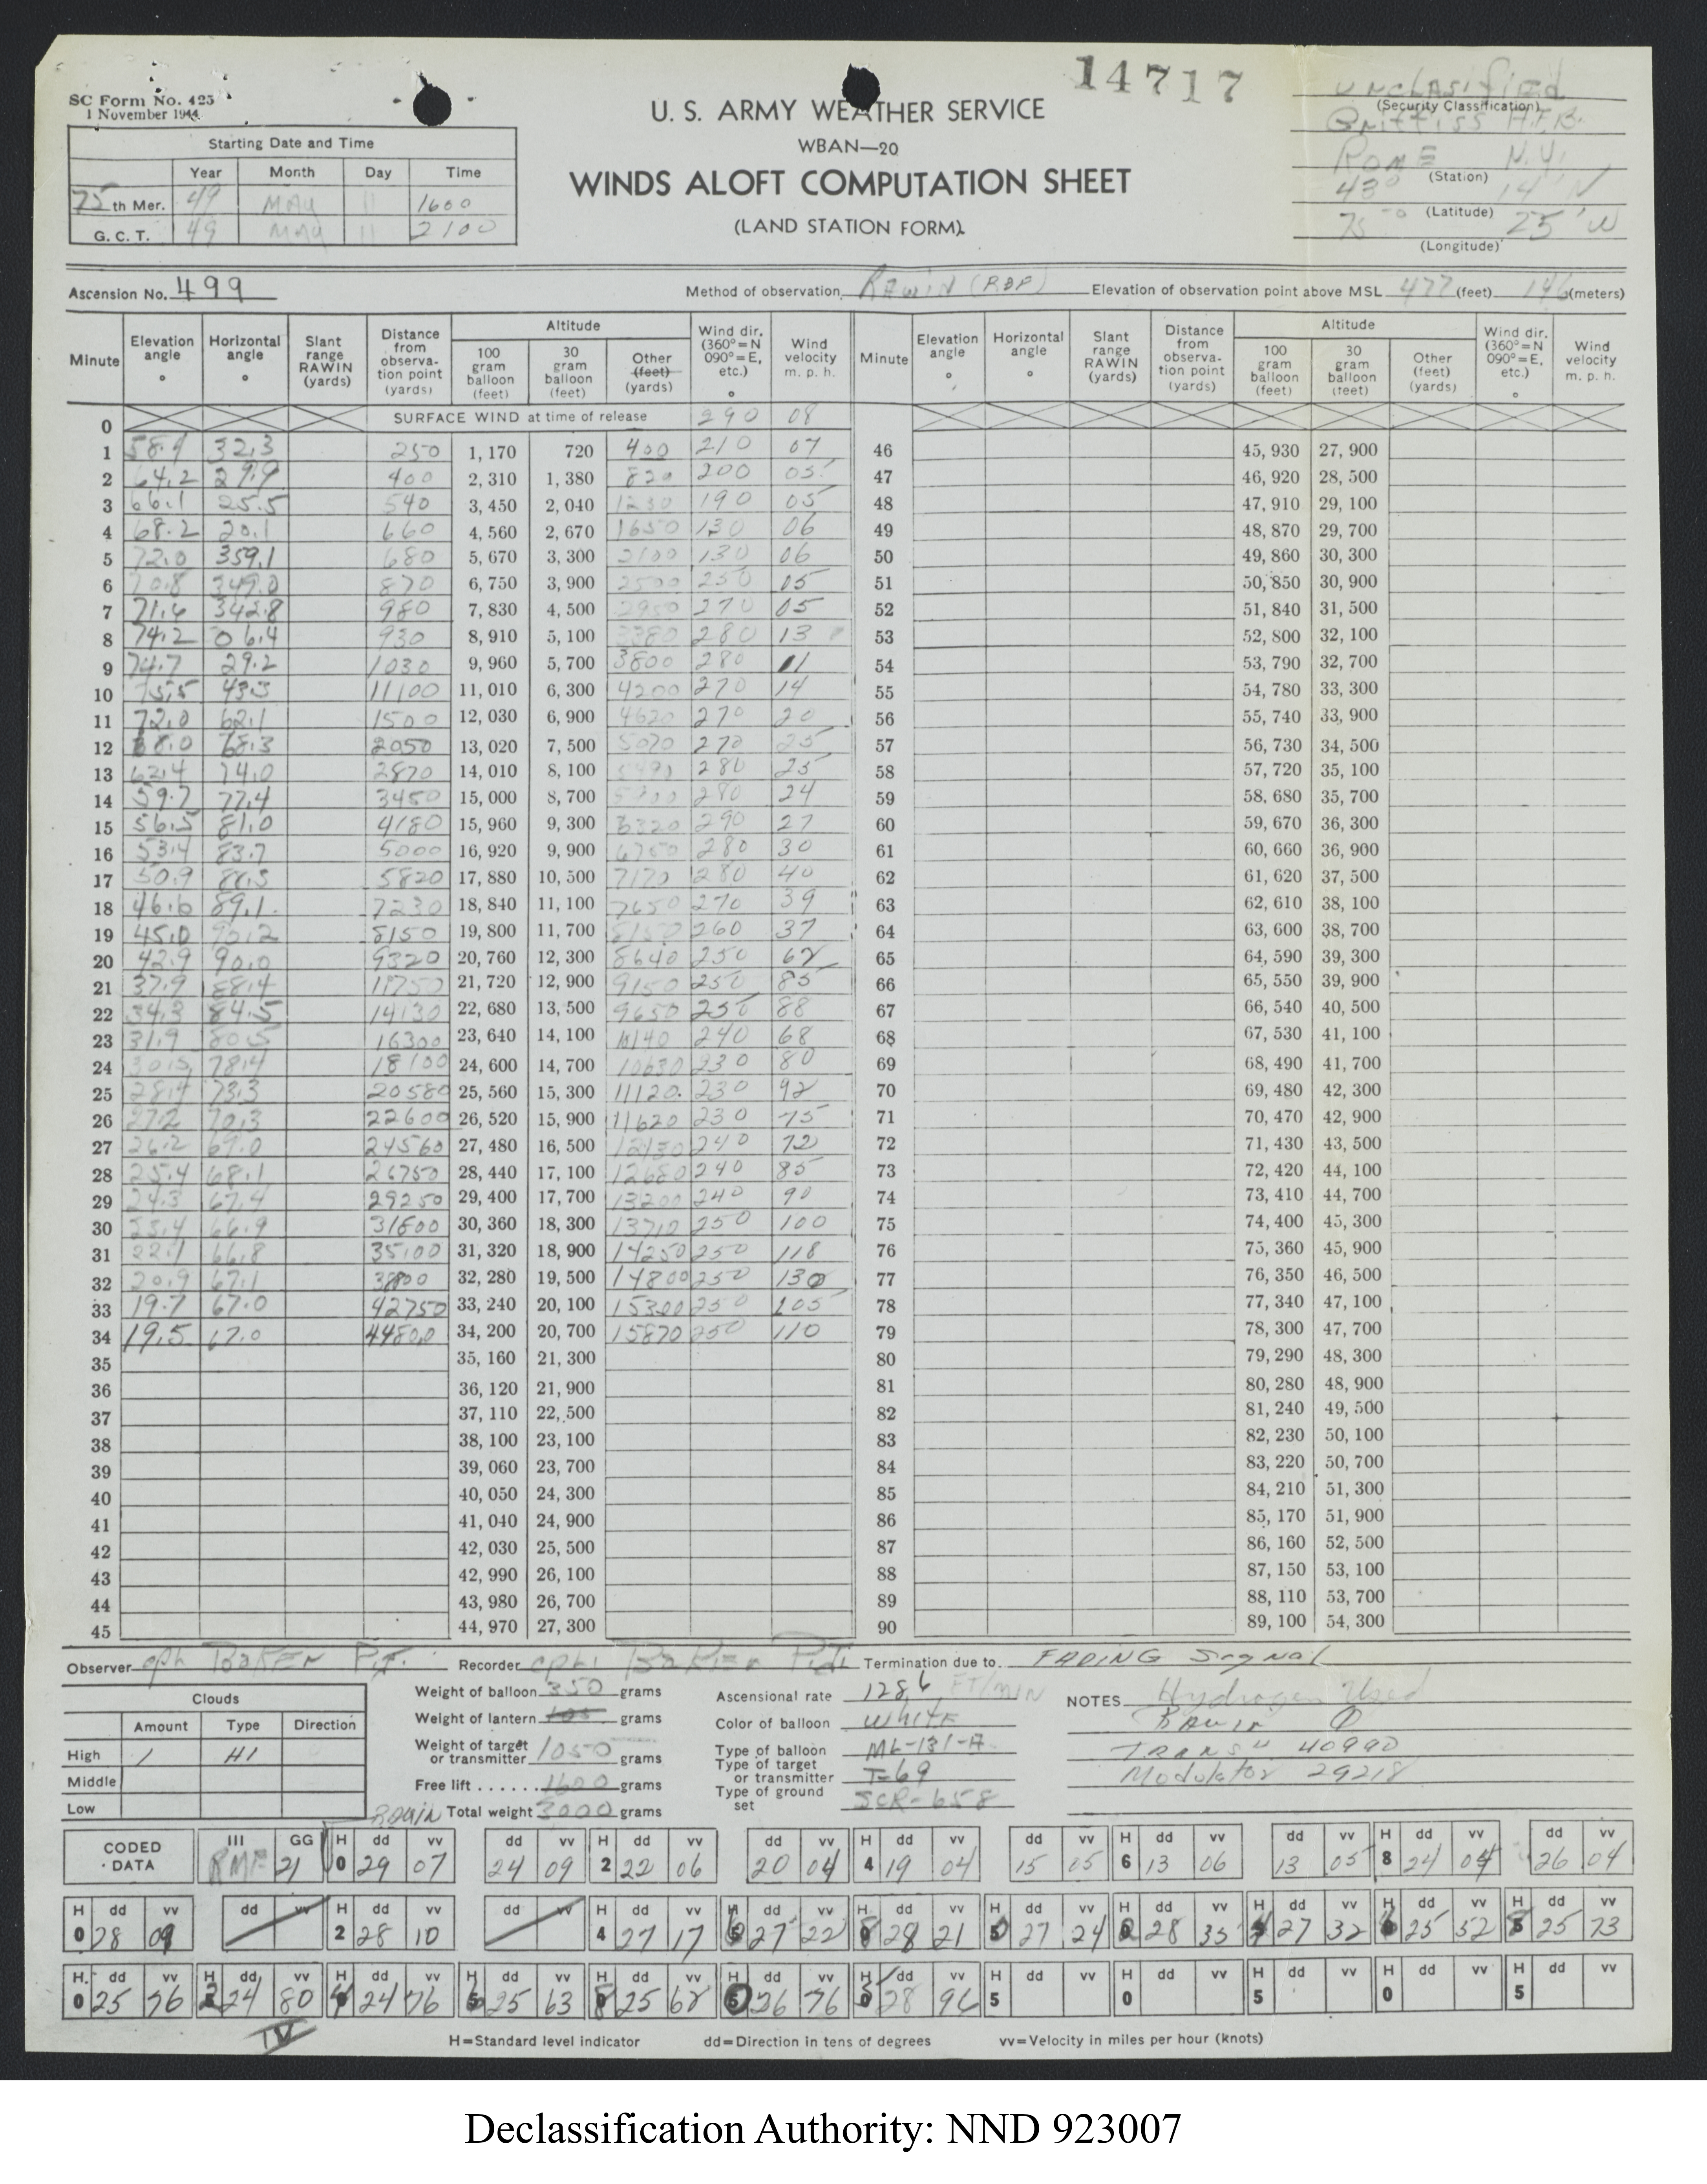 14717
SC Form No. 425
1 November 1944
U. S. ARMY WEATHER SERVICE
WBAN—20
WINDS ALOFT COMPUTATION SHEET
(LAND STATION FORM)
UNCLASSIFIED
(Security Classification)
Griffiss A.F.B.
ROME N.Y.
(Station)
43° 14' N
(Latitude)
75° 25' W
(Longitude)
Starting Date and Time
Year Month Day Time
75th Mer. 49 MAY 11 1600
G. C. T. 49 May 11 2100
Ascension No. 499 Method of observation RAWIN (RDF) Elevation of observation point above MSL 477 (feet) 146 (meters)
Minute Elevation angle ° Horizontal angle ° Slant range RAWIN (yards) Distance from observation point (yards) Altitude 100 gram balloon (feet) 30 gram balloon (feet) Other (feet) (yards) Wind dir. (360°=N 090°=E, etc.) ° Wind velocity m. p. h.
Minute Elevation angle ° Horizontal angle ° Slant range RAWIN (yards) Distance from observation point (yards) Altitude 100 gram balloon (feet) 30 gram balloon (feet) Other (feet) (yards) Wind dir. (360°=N 090°=E, etc.) ° Wind velocity m. p. h.
0 SURFACE WIND at time of release 290 08
1 58.9 32.3 250 1,170 720 400 210 07 46 45,930 27,900
2 64.2 29.9 400 2,310 1,380 820 200 05 47 46,920 28,500
3 66.1 25.5 540 3,450 2,040 1230 190 05 48 47,910 29,100
4 68.2 20.1 660 4,560 2,670 1650 130 06 49 48,870 29,700
5 72.0 359.1 680 5,670 3,300 2100 130 06 50 49,860 30,300
6 70.8 349.0 870 6,750 3,900 2500 250 05 51 50,850 30,900
7 71.6 342.8 980 7,830 4,500 2950 270 05 52 51,840 31,500
8 74.2 06.4 930 8,910 5,100 3380 280 13 53 52,800 32,100
9 74.7 29.2 1030 9,960 5,700 3800 280 11 54 53,790 32,700
10 75.5 43.3 11100 11,010 6,300 4200 270 14 55 54,780 33,300
11 72.0 62.1 1500 12,030 6,900 4620 270 20 56 55,740 33,900
12 68.0 68.3 2050 13,020 7,500 5070 270 25 57 56,730 34,500
13 62.4 74.0 2870 14,010 8,100 5490 280 25 58 57,720 35,100
14 59.7 77.4 3450 15,000 8,700 5900 280 24 59 58,680 35,700
15 56.5 81.0 4180 15,960 9,300 6320 290 27 60 59,670 36,300
16 53.4 83.7 5000 16,920 9,900 6750 280 30 61 60,660 36,900
17 50.9 88.3 5820 17,880 10,500 7170 280 40 62 61,620 37,500
18 46.6 89.1 7230 18,840 11,100 7650 270 39 63 62,610 38,100
19 45.0 90.2 8150 19,800 11,700 8150 260 37 64 63,600 38,700
20 42.9 90.0 9320 20,760 12,300 8640 250 62 65 64,590 39,300
21 37.9 88.4 11750 21,720 12,900 9150 250 85 66 65,550 39,900
22 34.3 84.5 14130 22,680 13,500 9650 250 88 67 66,540 40,500
23 31.9 80.5 16300 23,640 14,100 10140 240 68 68 67,530 41,100
24 30.5 78.4 18100 24,600 14,700 10630 230 80 69 68,490 41,700
25 28.4 73.3 20580 25,560 15,300 11120 230 92 70 69,480 42,300
26 27.2 70.3 22600 26,520 15,900 11620 230 75 71 70,470 42,900
27 26.2 69.0 24560 27,480 16,500 12130 240 72 72 71,430 43,500
28 25.4 68.1 26750 28,440 17,100 12680 240 85 73 72,420 44,100
29 24.3 67.4 29250 29,400 17,700 13200 240 90 74 73,410 44,700
30 23.4 66.9 31600 30,360 18,300 13710 250 100 75 74,400 45,300
31 22.1 66.8 35100 31,320 18,900 14250 250 118 76 75,360 45,900
32 20.9 67.1 38800 32,280 19,500 14800 250 130 77 76,350 46,500
33 19.7 67.0 42750 33,240 20,100 15300 250 105 78 77,340 47,100
34 19.5 67.0 44800 34,200 20,700 15870 250 110 79 78,300 47,700
35 35,160 21,300 80 79,290 48,300
36 36,120 21,900 81 80,280 48,900
37 37,110 22,500 82 81,240 49,500
38 38,100 23,100 83 82,230 50,100
39 39,060 23,700 84 83,220 50,700
40 40,050 24,300 85 84,210 51,300
41 41,040 24,900 86 85,170 51,900
42 42,030 25,500 87 86,160 52,500
43 42,990 26,100 88 87,150 53,100
44 43,980 26,700 89 88,110 53,700
45 44,970 27,300 90 89,100 54,300
Observer cpl. BAKER P.J. Recorder cpl. BAKER P.J. Termination due to FADING Signal
Clouds
Amount Type Direction
High 1 H1
Middle
Low
Weight of balloon 350 grams
Weight of lantern grams
Weight of target or transmitter 1050 grams
Free lift 1600 grams
RAWIN Total weight 3000 grams
Ascensional rate 1286 FT/MIN
Color of balloon WHITE
Type of balloon ML-131-A
Type of target or transmitter T-69
Type of ground set SCR-658
NOTES Hydrogen Used
RAWIN
TRANS# 40990
Modulator 29218
CODED DATA III RME GG 21 H 0 dd 29 vv 07 dd 24 vv 09 H 2 dd 22 vv 06 dd 20 vv 04 H 4 dd 19 vv 04 dd 15 vv 05 H 6 dd 13 vv 06 dd 13 vv 05 H 8 dd 24 vv 04 dd 26 vv 04
H 0 dd 28 vv 09 dd vv H 2 dd 28 vv 10 dd vv H 4 dd 27 vv 17 H 6 dd 27 vv 22 H 8 dd 28 vv 21 H 0 dd 27 vv 24 H 2 dd 28 vv 35 H 4 dd 27 vv 32 H 6 dd 25 vv 52 H 8 dd 25 vv 73
H 0 dd 25 vv 76 H 2 dd 24 vv 80 H 4 dd 24 vv 76 H 6 dd 25 vv 63 H 8 dd 25 vv 68 H 0 dd 26 vv 76 H 5 dd 28 vv 96 H 5 dd vv H 0 dd vv H 5 dd vv H 0 dd vv H 5 dd vv
IV
H=Standard level indicator dd=Direction in tens of degrees vv=Velocity in miles per hour (knots)
Declassification Authority: NND 923007